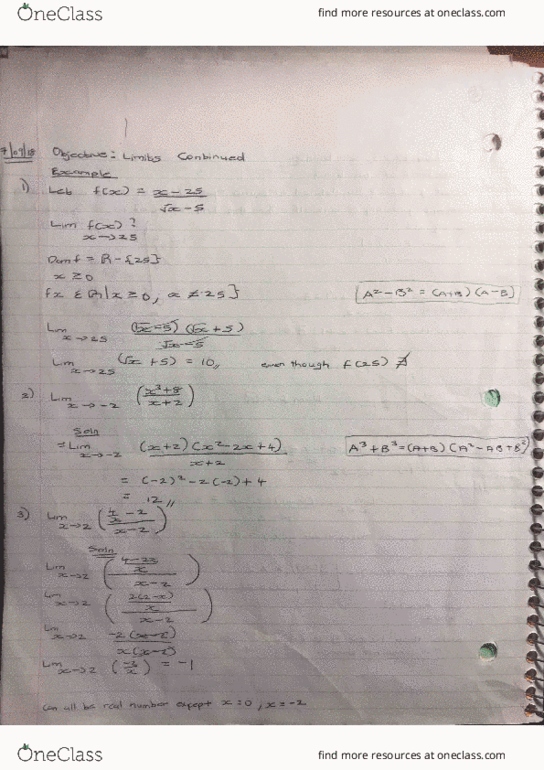 OneClass
find more resources at oneclass.com
Objective: Limits Continued
Example
1) Let f(x) = x - 25
√x - 5
Lim f(x) ?
x→25
Dom f = R - {25}
x ≥ 0
{x ∈ R | x ≥ 0, x ≠ 25}
A² - B² = (A+B)(A-B)
Lim (√x - 5)(√x + 5)
x→25 √x - 5
Lim (√x + 5) = 10,, even though f(25) ∄
x→25
2) Lim (x³+8 / x+2)
x→-2
Soln
= Lim (x+2)(x²-2x+4)
x→-2 x+2
A³+B³=(A+B)(A²-AB+B²)
= (-2)² - 2(-2) + 4
= 12,,
3) Lim (4/x - 2 / x-2)
x→2
Soln
Lim (4-2x / x / x-2)
x→2
Lim (2(2-x) / x / x-2)
x→2
Lim -2(x-2)
x→2 x(x-2)
Lim (-2/x) = -1
x→2
Can all be real number except x=0, x=-2
OneClass
find more resources at oneclass.com